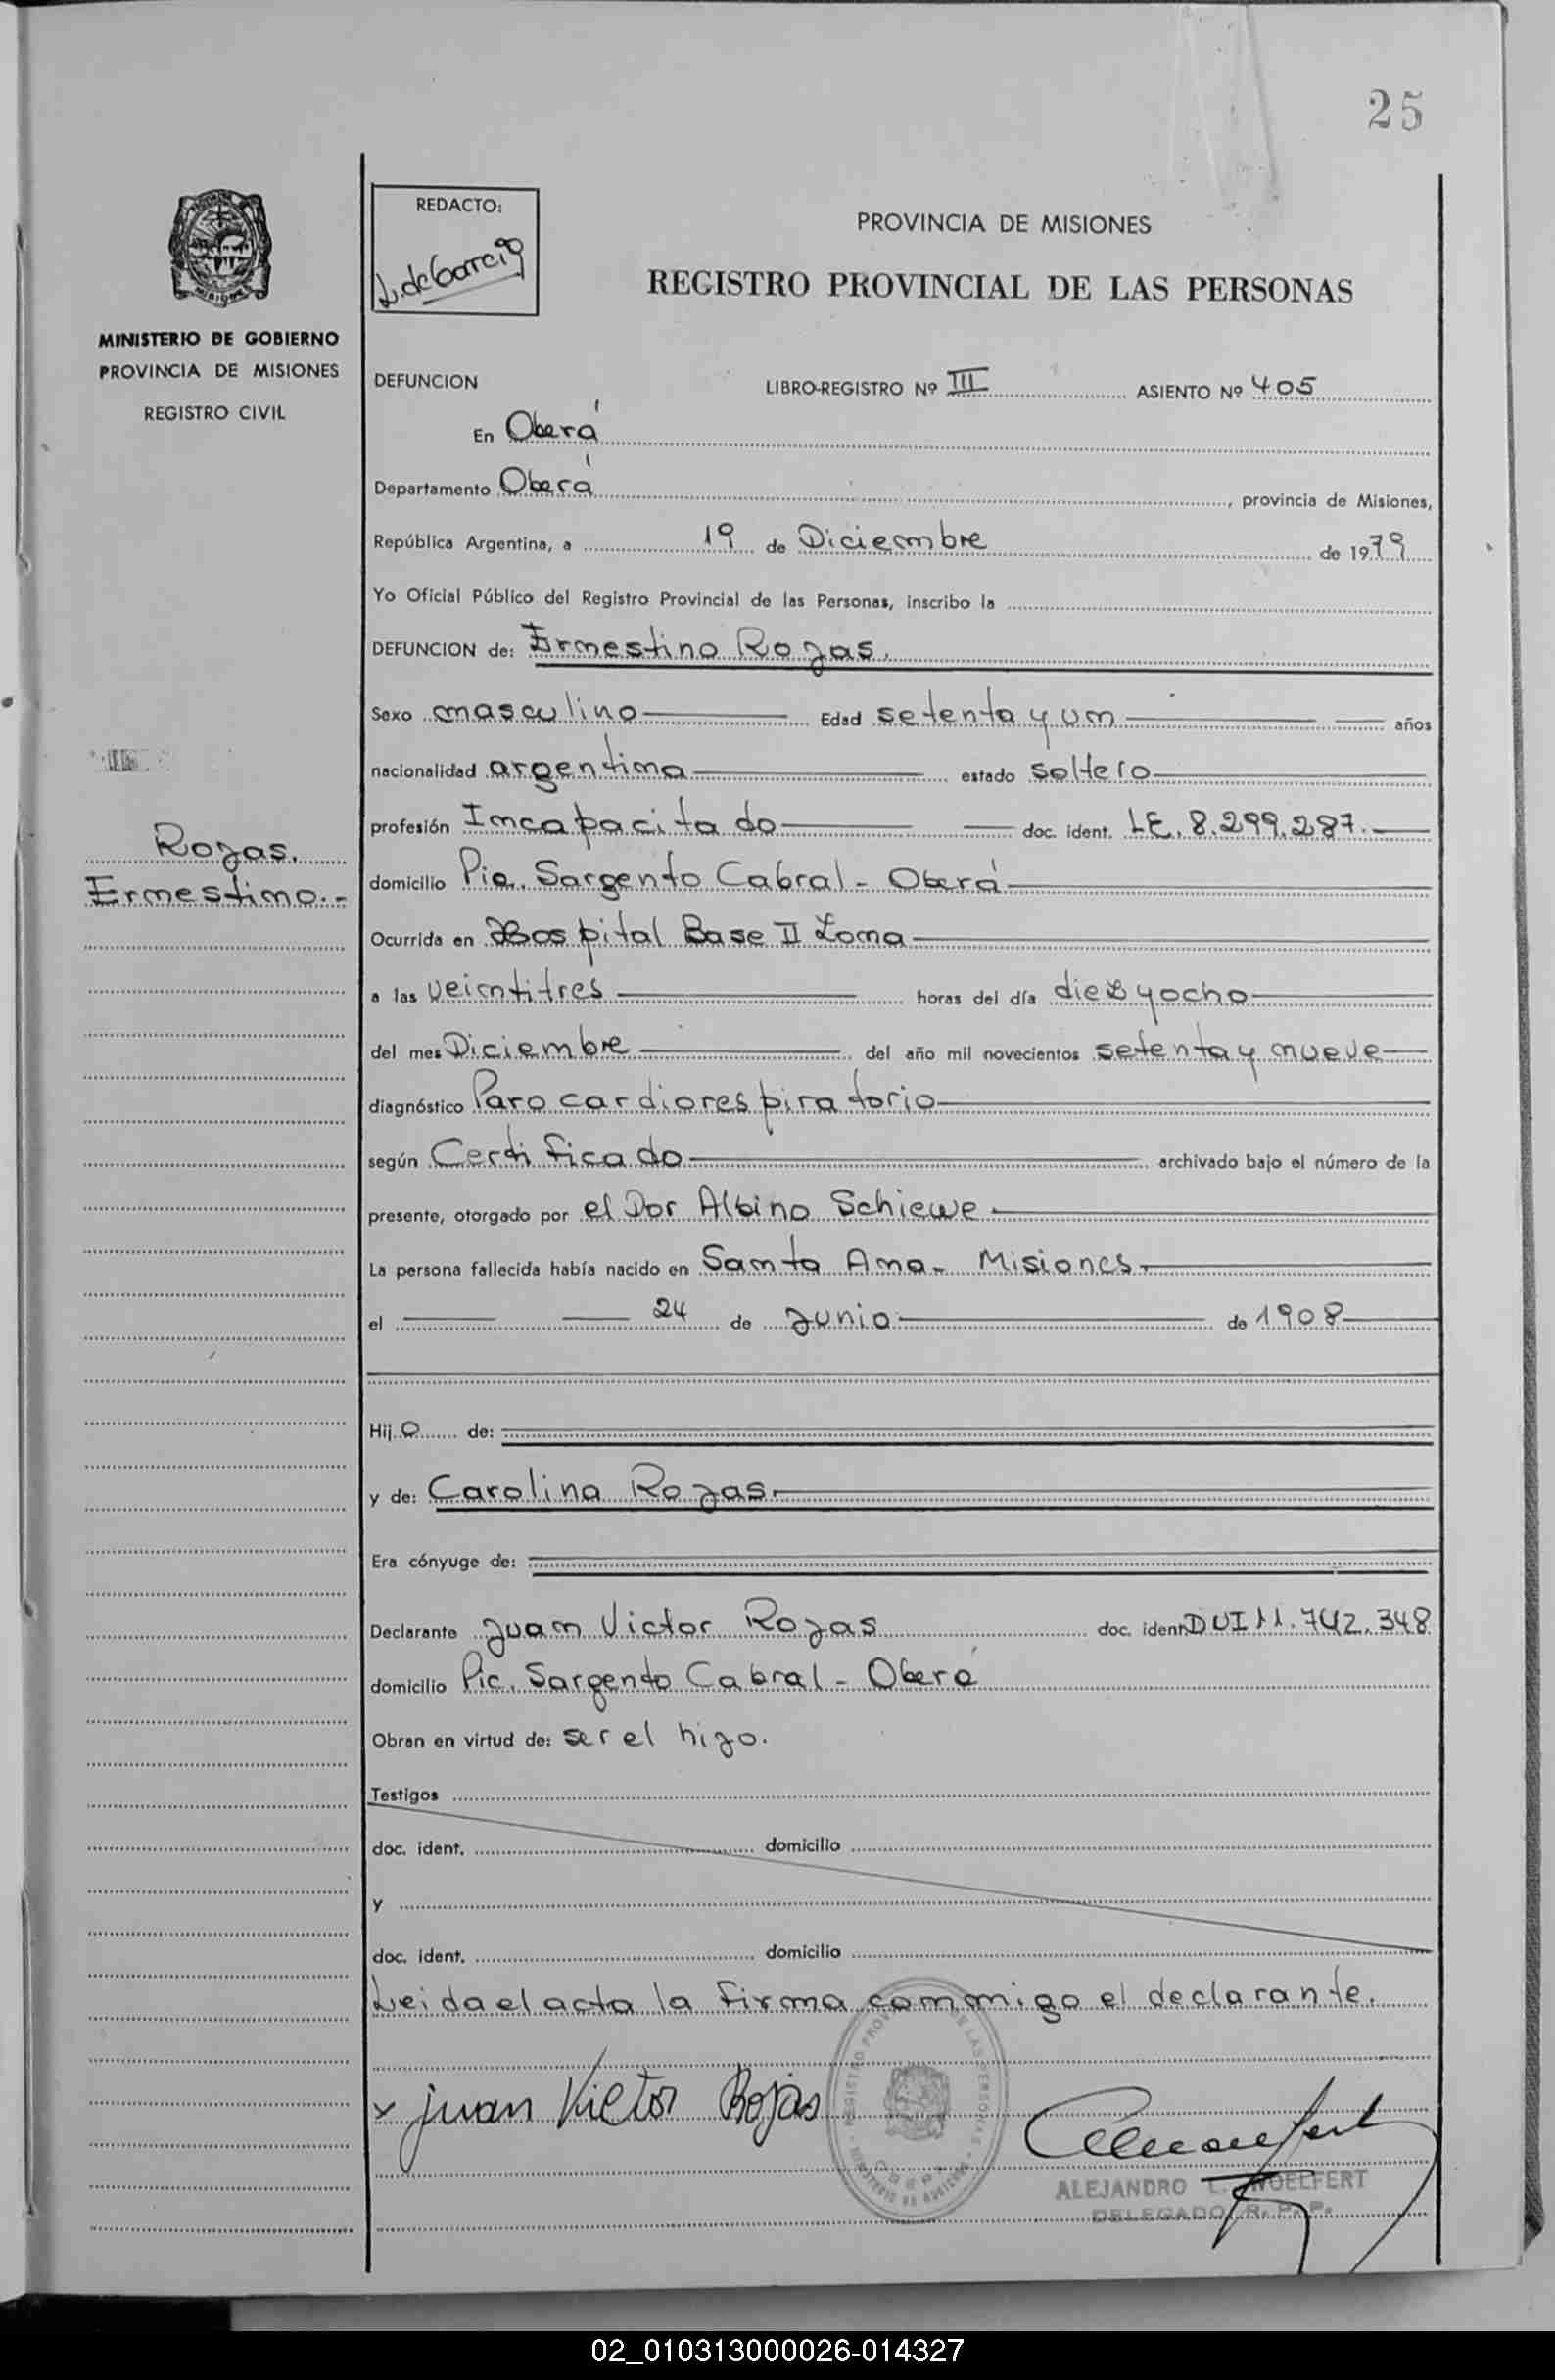 25
REDACTO:
L. de Garcia
PROVINCIA DE MISIONES
REGISTRO PROVINCIAL DE LAS PERSONAS
MINISTERIO DE GOBIERNO
PROVINCIA DE MISIONES
REGISTRO CIVIL
DEFUNCION LIBRO-REGISTRO Nº III ASIENTO Nº 405
En Oberá
Departamento Oberá, provincia de Misiones,
República Argentina, a 19 de Diciembre de 1979
Yo Oficial Público del Registro Provincial de las Personas, inscribo la
DEFUNCION de: Ernestino Rojas.
Sexo masculino Edad setenta y un años
nacionalidad argentina estado soltero
profesión Incapacitado doc. ident. LE. 8.299.287.
Rojas.
Ernestino.-
domicilio Pic. Sargento Cabral - Oberá
Ocurrida en Hospital Base II Zona
a las veintitrés horas del día diez y ocho
del mes Diciembre del año mil novecientos setenta y nueve
diagnóstico Paro cardiorespiratorio
según Certificado archivado bajo el número de la
presente, otorgado por el Dor Albino Schiewe
La persona fallecida había nacido en Santa Ana - Misiones
el 24 de Junio de 1908
Hijo de:
y de: Carolina Rojas.
Era cónyuge de:
Declarante Juan Victor Rojas doc. ident. DUI 11.742.348
domicilio Pic. Sargento Cabral - Oberá
Obran en virtud de: ser el hijo.
Testigos
doc. ident. domicilio
y
doc. ident. domicilio
Leida el acta la firma conmigo el declarante.
x juan Victor Rojas
REGISTRO PROVINCIAL DE LAS PERSONAS
ALEJANDRO L. WOELFERT
DELEGADO R. P. P.
02_010313000026-014327